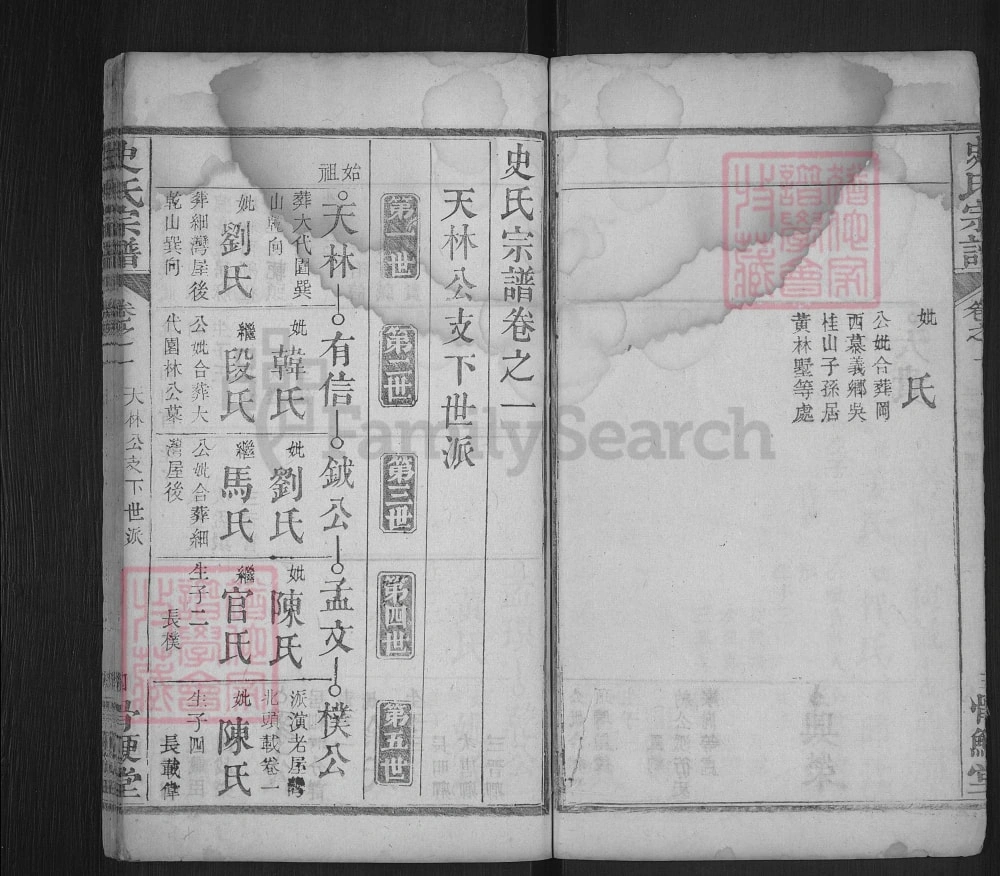 史氏宗譜
妣 氏
公妣合葬岡
西慕義鄉吳
桂山子孫居
黃林墅等處
史氏宗譜卷之一
天林公支下世派
第一世
第二世
第三世
第四世
第五世
始祖
天林
有信
鉞公
孟文
樸公
葬大代園巽
山乾向
妣劉氏
葬細灣屋後
乾山巽向
妣韓氏
繼段氏
公妣合葬大
代園林公墓
妣劉氏
繼馬氏
公妣合葬細
灣屋後
妣陳氏
繼官氏
生子二
長樸
派演老屋灣
北頭載卷一
妣陳氏
生子四
長載偉
史氏宗譜
卷之一
天林公支下世派
骨鯁堂
FamilySearch